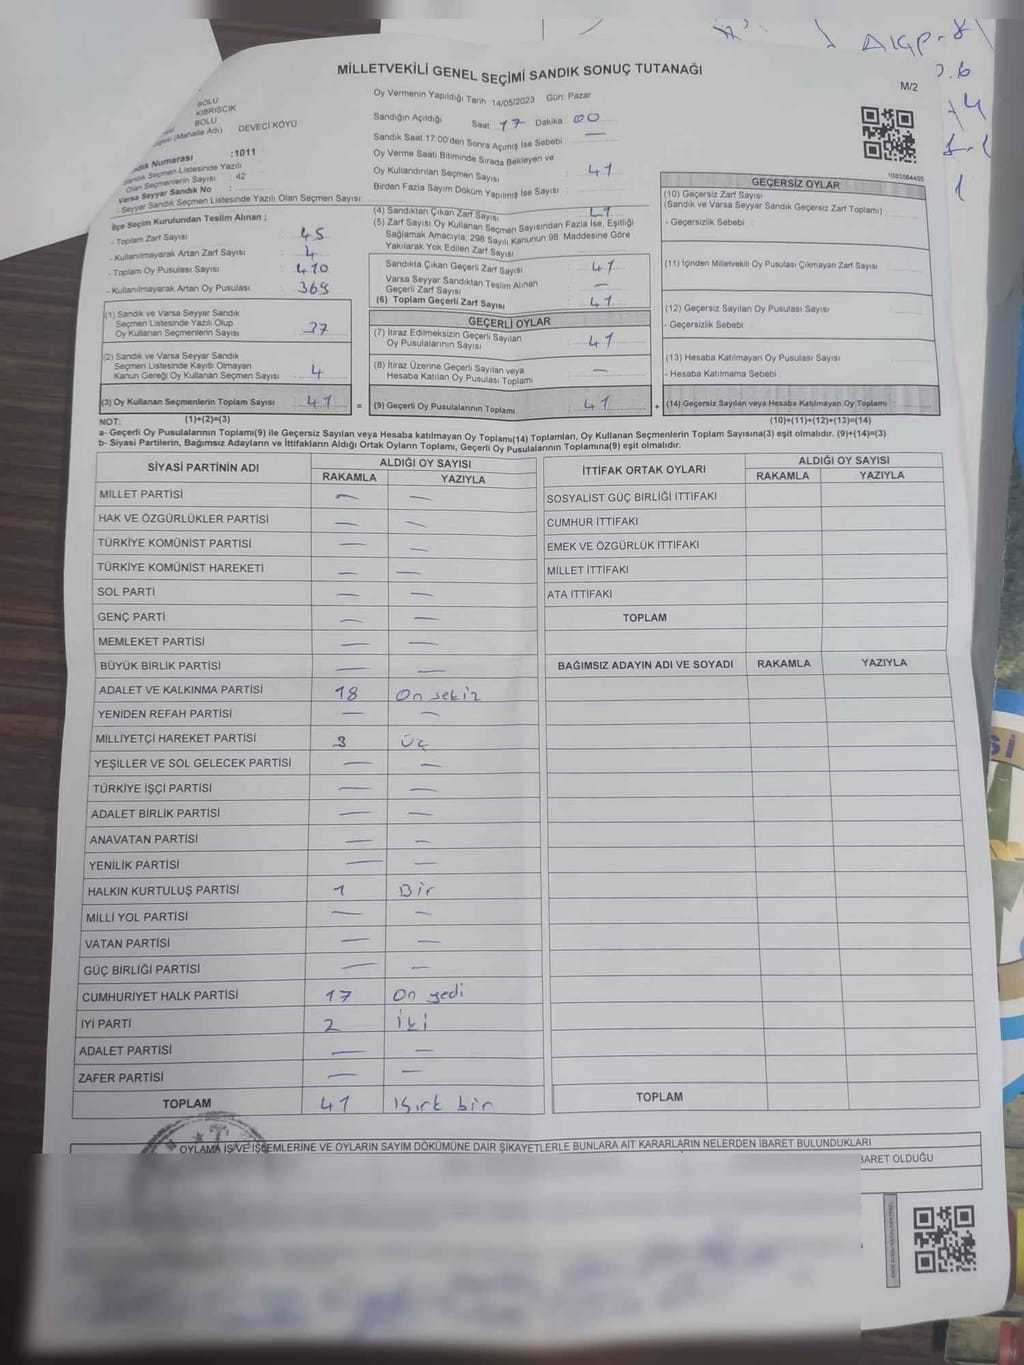 AKP-8
MİLLETVEKİLİ GENEL SEÇİMİ SANDIK SONUÇ TUTANAĞI
M/2
BOLU
KIBRISCIK
BOLU
(Mahalle Adı) DEVECİ KÖYÜ
Numarası :1011
Sandık Seçmen Listesinde Yazılı
Olan Seçmenlerin Sayısı : 42
Varsa Seyyar Sandık No :
- Seyyar Sandık Seçmen Listesinde Yazılı Olan Seçmen Sayısı
İlçe Seçim Kurulundan Teslim Alınan ;
- Toplam Zarf Sayısı 45
- Kullanılmayarak Artan Zarf Sayısı 4
- Toplam Oy Pusulası Sayısı 410
- Kullanılmayarak Artan Oy Pusulası 369
(1) Sandık ve Varsa Seyyar Sandık
Seçmen Listesinde Yazılı Olup
Oy Kullanan Seçmenlerin Sayısı 37
(2) Sandık ve Varsa Seyyar Sandık
Seçmen Listesinde Kayıtlı Olmayan
Kanun Gereği Oy Kullanan Seçmen Sayısı 4
(3) Oy Kullanan Seçmenlerin Toplam Sayısı 41
Oy Vermenin Yapıldığı Tarih :14/05/2023 Gün: Pazar
Sandığın Açıldığı Saat 17 Dakika 00
Sandık Saat 17.00'den Sonra Açımış İse Sebebi : —
Oy Verme Saati Bitiminde Sırada Bekleyen ve
Oy Kullandırılan Seçmen Sayısı 41
Birden Fazla Sayım Döküm Yapılmış İse Sayısı :
(4) Sandıktan Çıkan Zarf Sayısı 41
(5) Zarf Sayısı Oy Kullanan Seçmen Sayısından Fazla İse, Eşitliği
Sağlamak Amacıyla; 298 Sayılı Kanunun 98. Maddesine Göre
Yakılarak Yok Edilen Zarf Sayısı
Sandıkta Çıkan Geçerli Zarf Sayısı 41
Varsa Seyyar Sandıktan Teslim Alınan
Geçerli Zarf Sayısı —
(6) Toplam Geçerli Zarf Sayısı 41
GEÇERLİ OYLAR
(7) İtiraz Edilmeksizin Geçerli Sayılan
Oy Pusulalarının Sayısı 41
(8) İtiraz Üzerine Geçerli Sayılan veya
Hesaba Katılan Oy Pusulası Toplamı —
= (9) Geçerli Oy Pusulalarının Toplamı 41
1083564455
GEÇERSİZ OYLAR
(10) Geçersiz Zarf Sayısı
(Sandık ve Varsa Seyyar Sandık Geçersiz Zarf Toplamı)
- Geçersizlik Sebebi :
(11) İçinden Milletvekili Oy Pusulası Çıkmayan Zarf Sayısı
(12) Geçersiz Sayılan Oy Pusulası Sayısı
- Geçersizlik Sebebi :
(13) Hesaba Katılmayan Oy Pusulası Sayısı
- Hesaba Katılmama Sebebi :
+ (14) Geçersiz Sayılan veya Hesaba Katılmayan Oy Toplamı
NOT: (1)+(2)=(3) (10)+(11)+(12)+(13)=(14)
a- Geçerli Oy Pusulalarının Toplamı(9) ile Geçersiz Sayılan veya Hesaba katılmayan Oy Toplamı(14) Toplamları, Oy Kullanan Seçmenlerin Toplam Sayısına(3) eşit olmalıdır. (9)+(14)=(3)
b- Siyasi Partilerin, Bağımsız Adayların ve İttifakların Aldığı Ortak Oyların Toplamı, Geçerli Oy Pusulalarının Toplamına(9) eşit olmalıdır.
SİYASİ PARTİNİN ADI ALDIĞI OY SAYISI
RAKAMLA YAZIYLA
MİLLET PARTİSİ — —
HAK VE ÖZGÜRLÜKLER PARTİSİ — —
TÜRKİYE KOMÜNİST PARTİSİ — —
TÜRKİYE KOMÜNİST HAREKETİ — —
SOL PARTİ — —
GENÇ PARTİ — —
MEMLEKET PARTİSİ — —
BÜYÜK BİRLİK PARTİSİ — —
ADALET VE KALKINMA PARTİSİ 18 On sekiz
YENİDEN REFAH PARTİSİ — —
MİLLİYETÇİ HAREKET PARTİSİ 3 Üç
YEŞİLLER VE SOL GELECEK PARTİSİ — —
TÜRKİYE İŞÇİ PARTİSİ — —
ADALET BİRLİK PARTİSİ — —
ANAVATAN PARTİSİ — —
YENİLİK PARTİSİ — —
HALKIN KURTULUŞ PARTİSİ 1 Bir
MİLLİ YOL PARTİSİ — —
VATAN PARTİSİ — —
GÜÇ BİRLİĞİ PARTİSİ — —
CUMHURİYET HALK PARTİSİ 17 On yedi
İYİ PARTİ 2 İki
ADALET PARTİSİ — —
ZAFER PARTİSİ — —
TOPLAM 41 Kırk bir
İTTİFAK ORTAK OYLARI ALDIĞI OY SAYISI
RAKAMLA YAZIYLA
SOSYALİST GÜÇ BİRLİĞİ İTTİFAKI
CUMHUR İTTİFAKI
EMEK VE ÖZGÜRLÜK İTTİFAKI
MİLLET İTTİFAKI
ATA İTTİFAKI
TOPLAM
BAĞIMSIZ ADAYIN ADI VE SOYADI RAKAMLA YAZIYLA
TOPLAM
OYLAMA İŞ VE İŞLEMLERİNE VE OYLARIN SAYIM DÖKÜMÜNE DAİR ŞİKAYETLERLE BUNLARA AİT KARARLARIN NELERDEN İBARET BULUNDUKLARI
BARET OLDUĞU